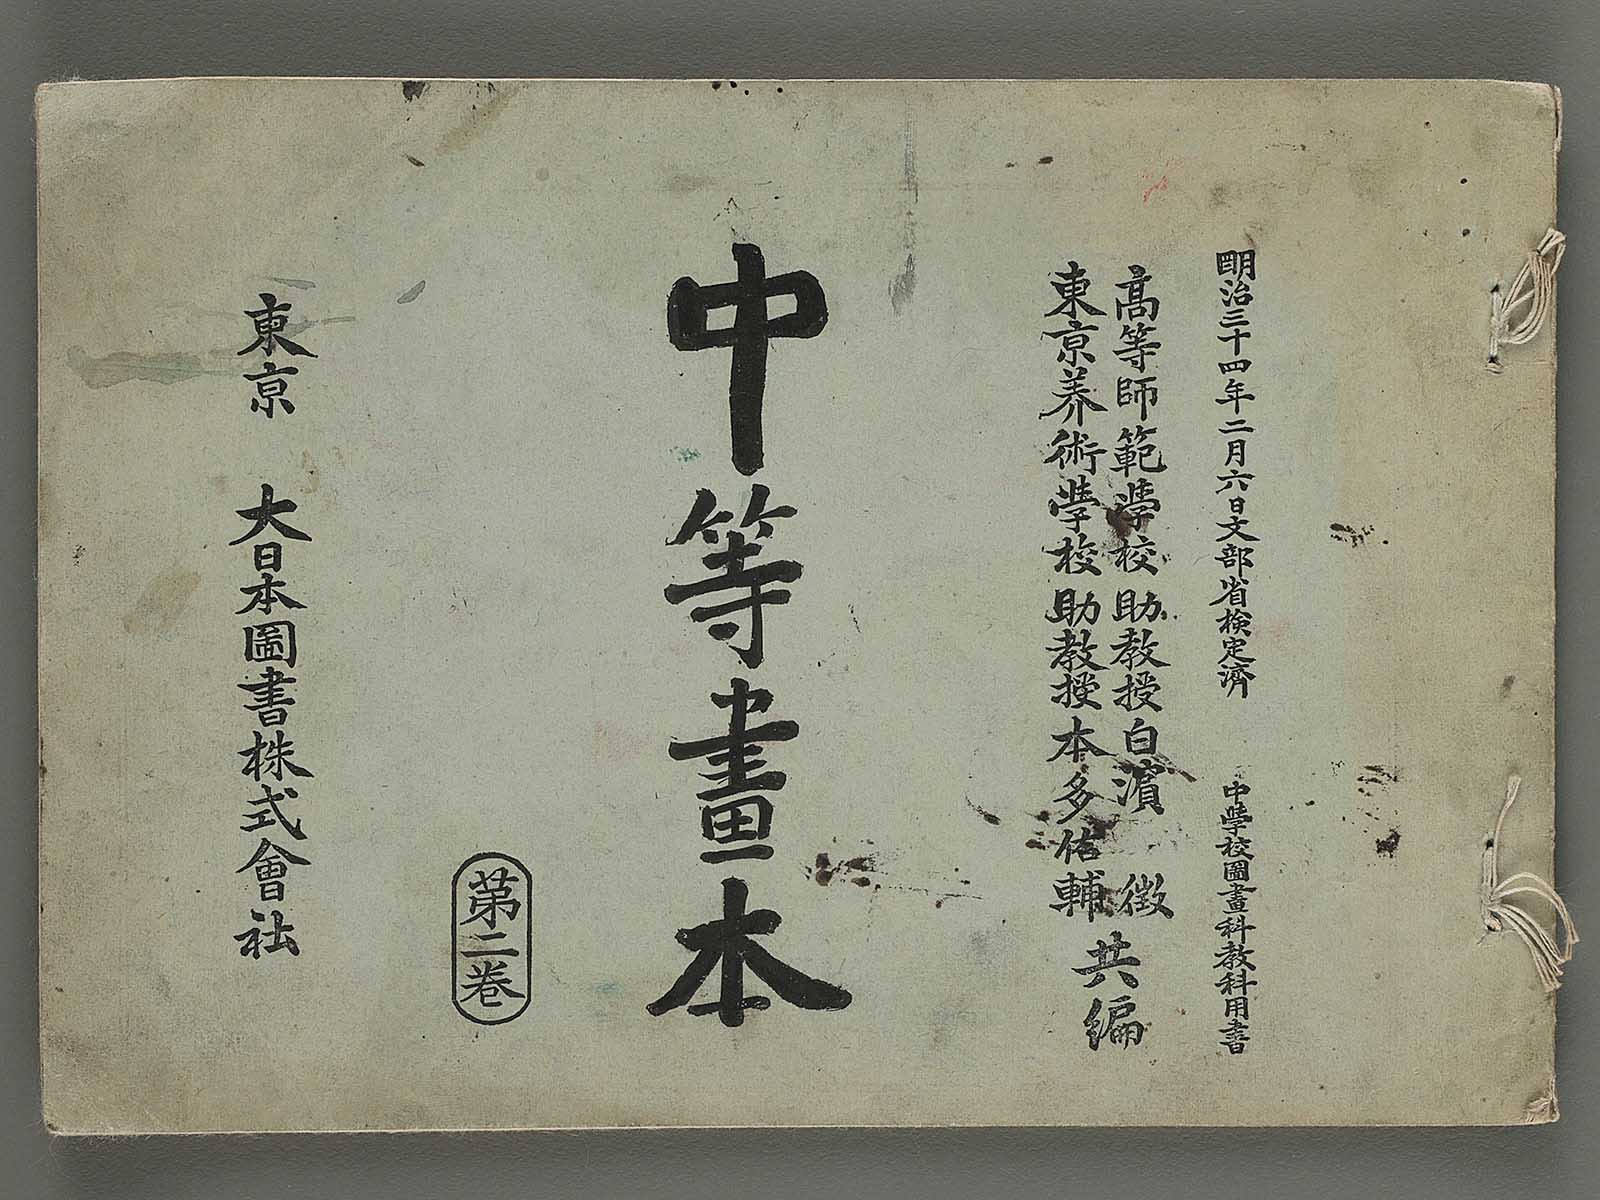 明治三十四年二月六日文部省検定済 中學校圖畫科教科用書
高等師範學校助教授白濱 徴
東京美術學校助教授本多佑輔
共編
中等畫本
第二巻
東京 大日本圖書株式會社